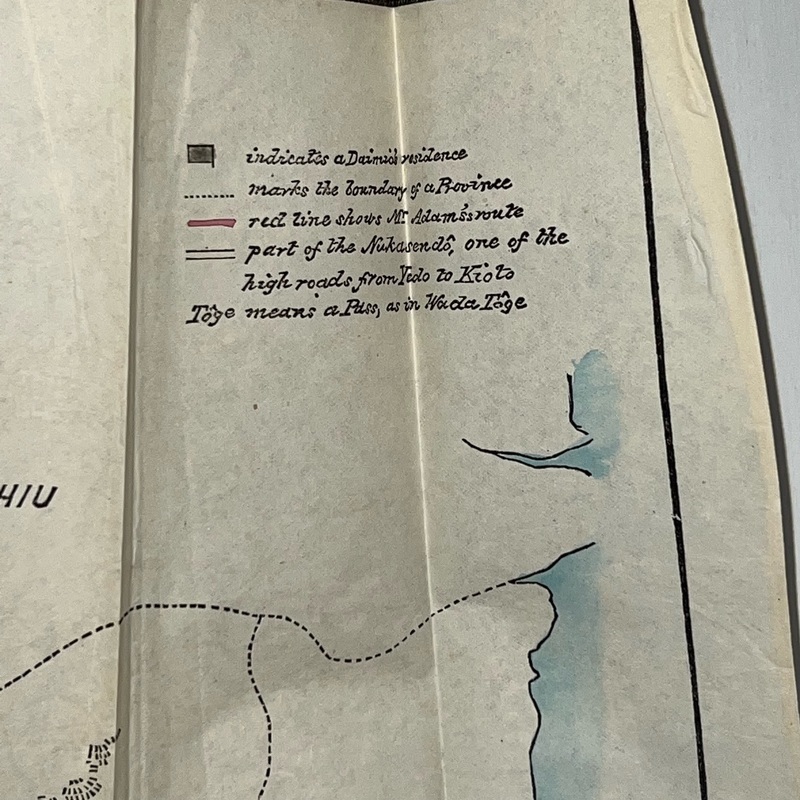 indicates a Daimio's residence
marks the boundary of a Rovince
red line shows Mr Adams's route
part of the Nukasendô, one of the
high roads from Yedo to Kioto
Tôge means a Pass, as in Wada Tôge
HIU